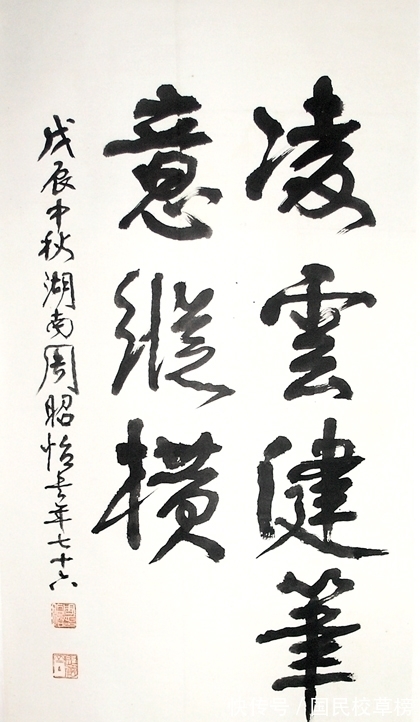 凌雲健筆
意縱橫
戊辰中秋湖南周昭怡書年七十六
快传号/国民校草榜